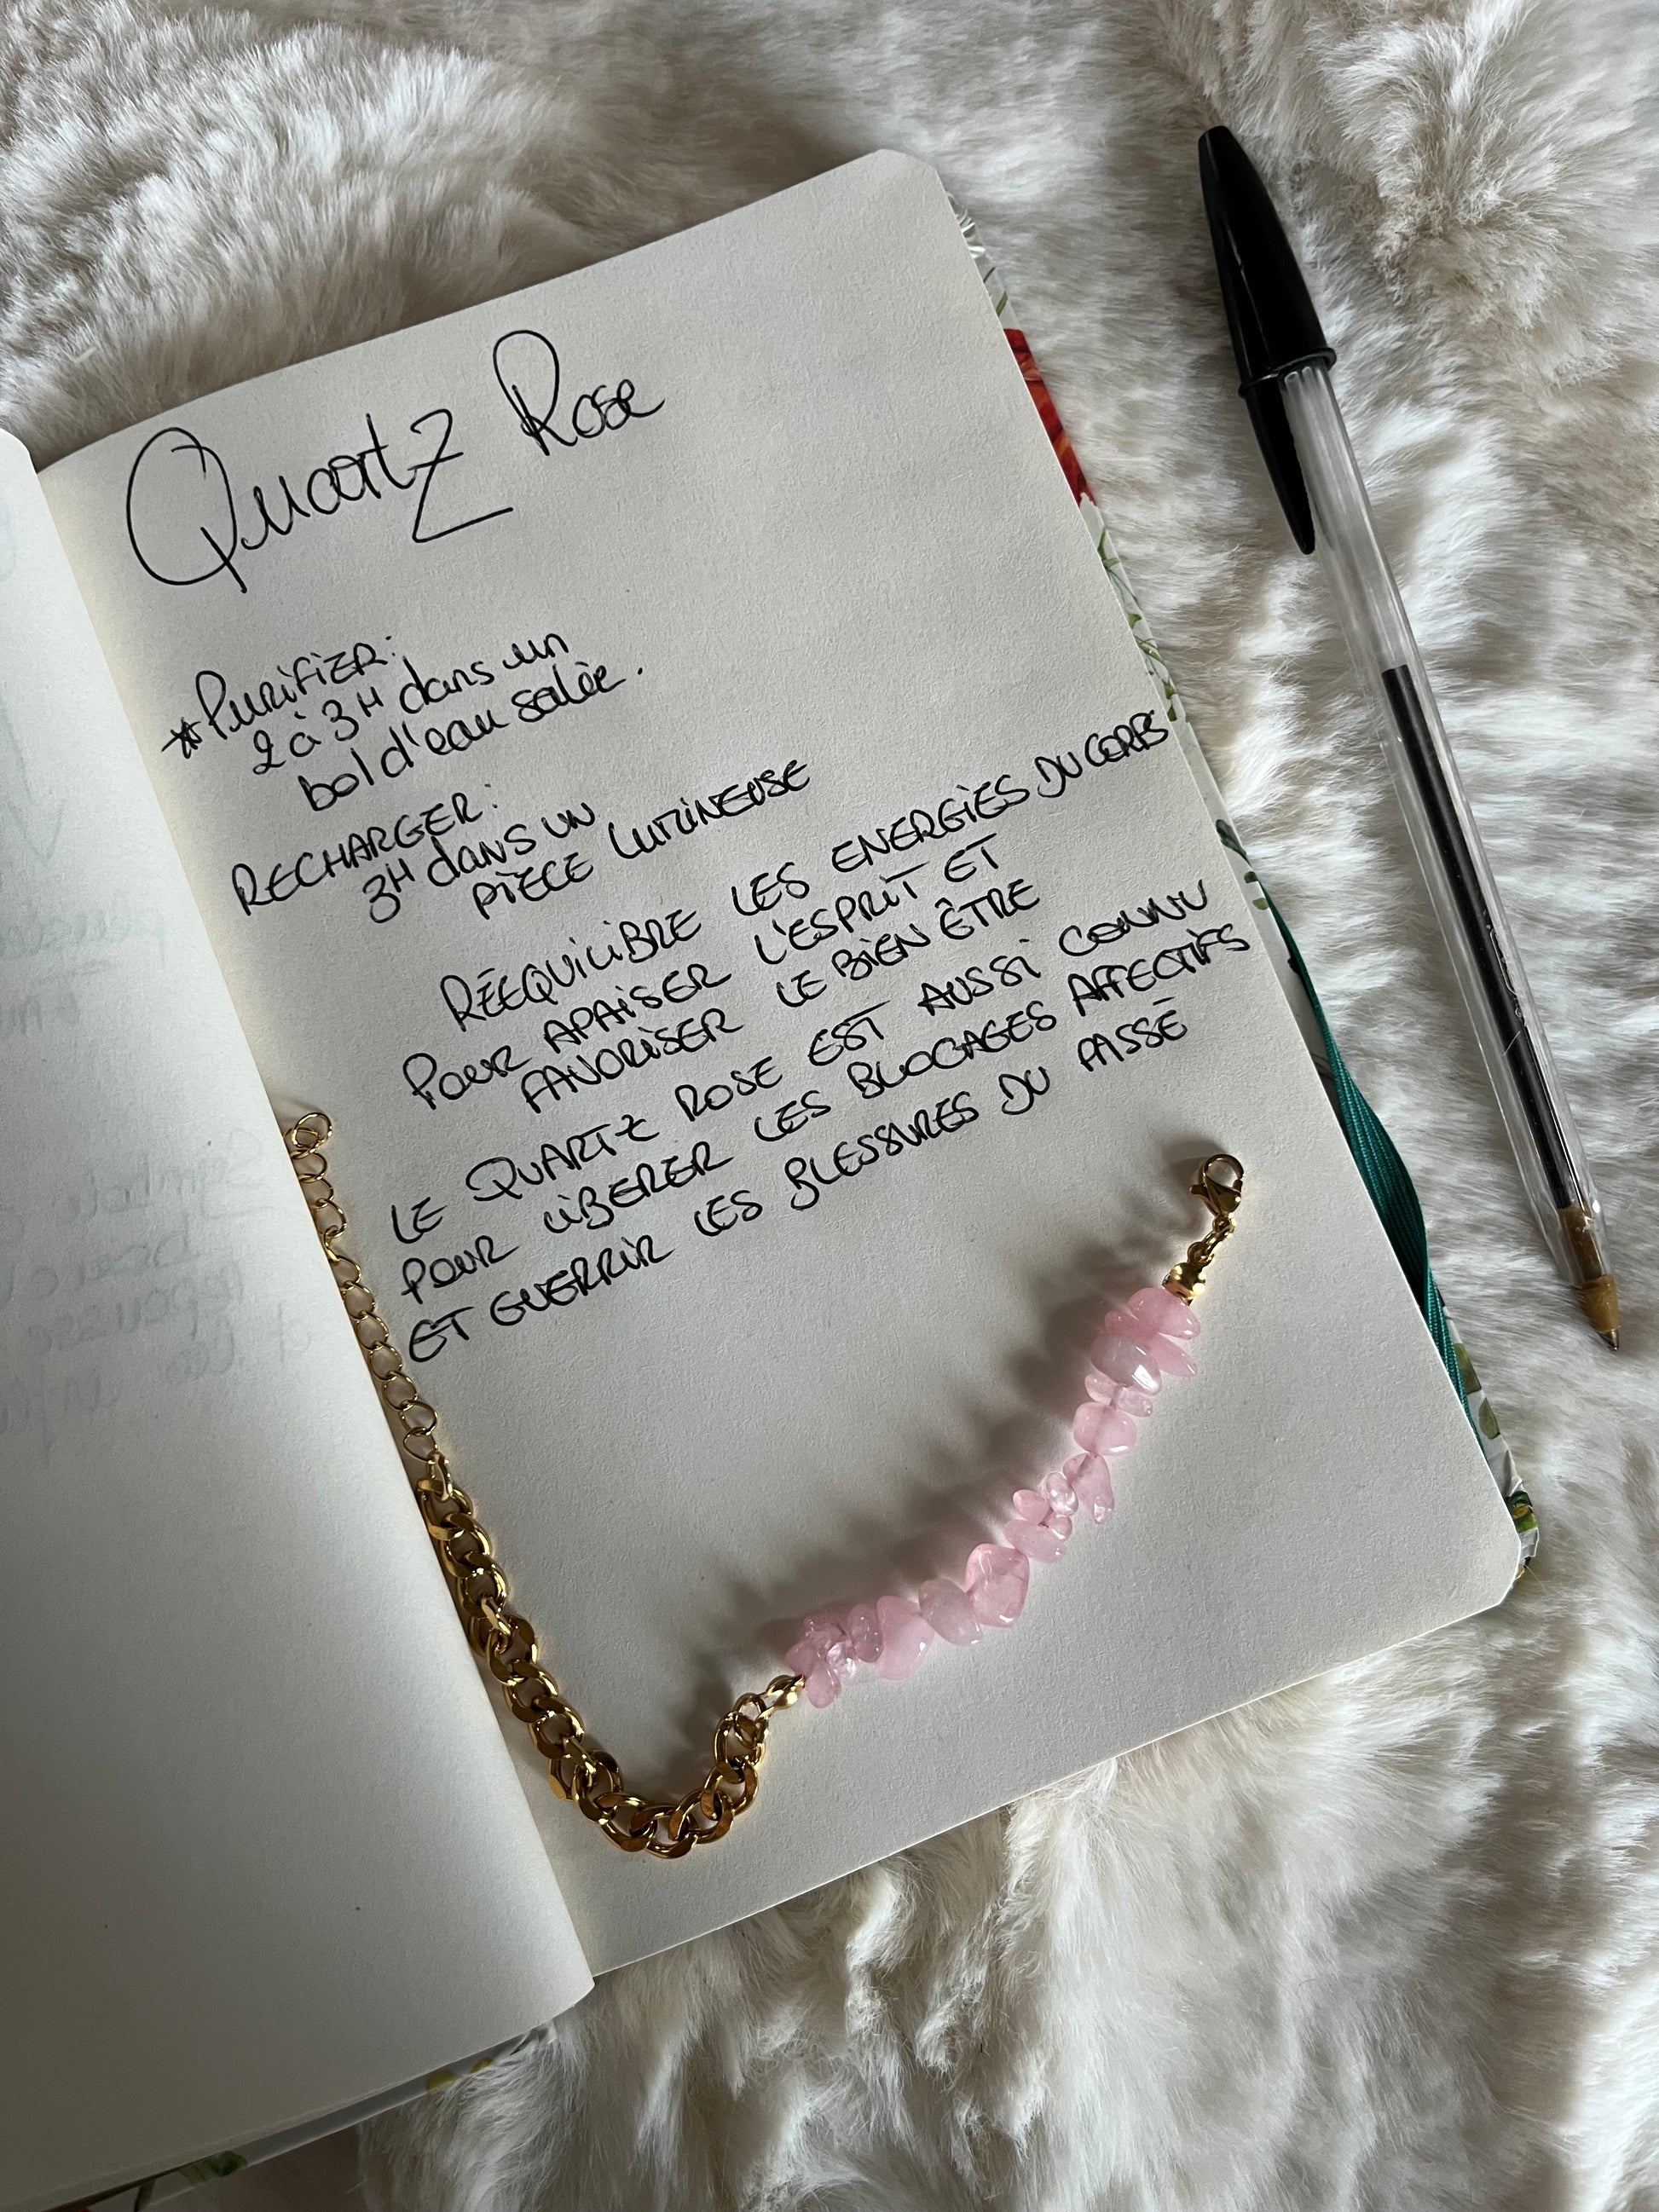 Quartz Rose
*Purifier:
2 à 3H dans un
bol d'eau salée.
RECHARGER:
3H dans un
pièce lumineuse
RÉEQUILIBRE LES ENERGIES DU CORPS
POUR APAISER L'ESPRIT ET
FAVORISER LE BIEN ÊTRE
LE QUARTZ ROSE EST AUSSI CONNU
POUR LIBERER LES BLOCAGES AFFECTIFS
ET GUERRIR LES BLESSURES DU PASSÉ